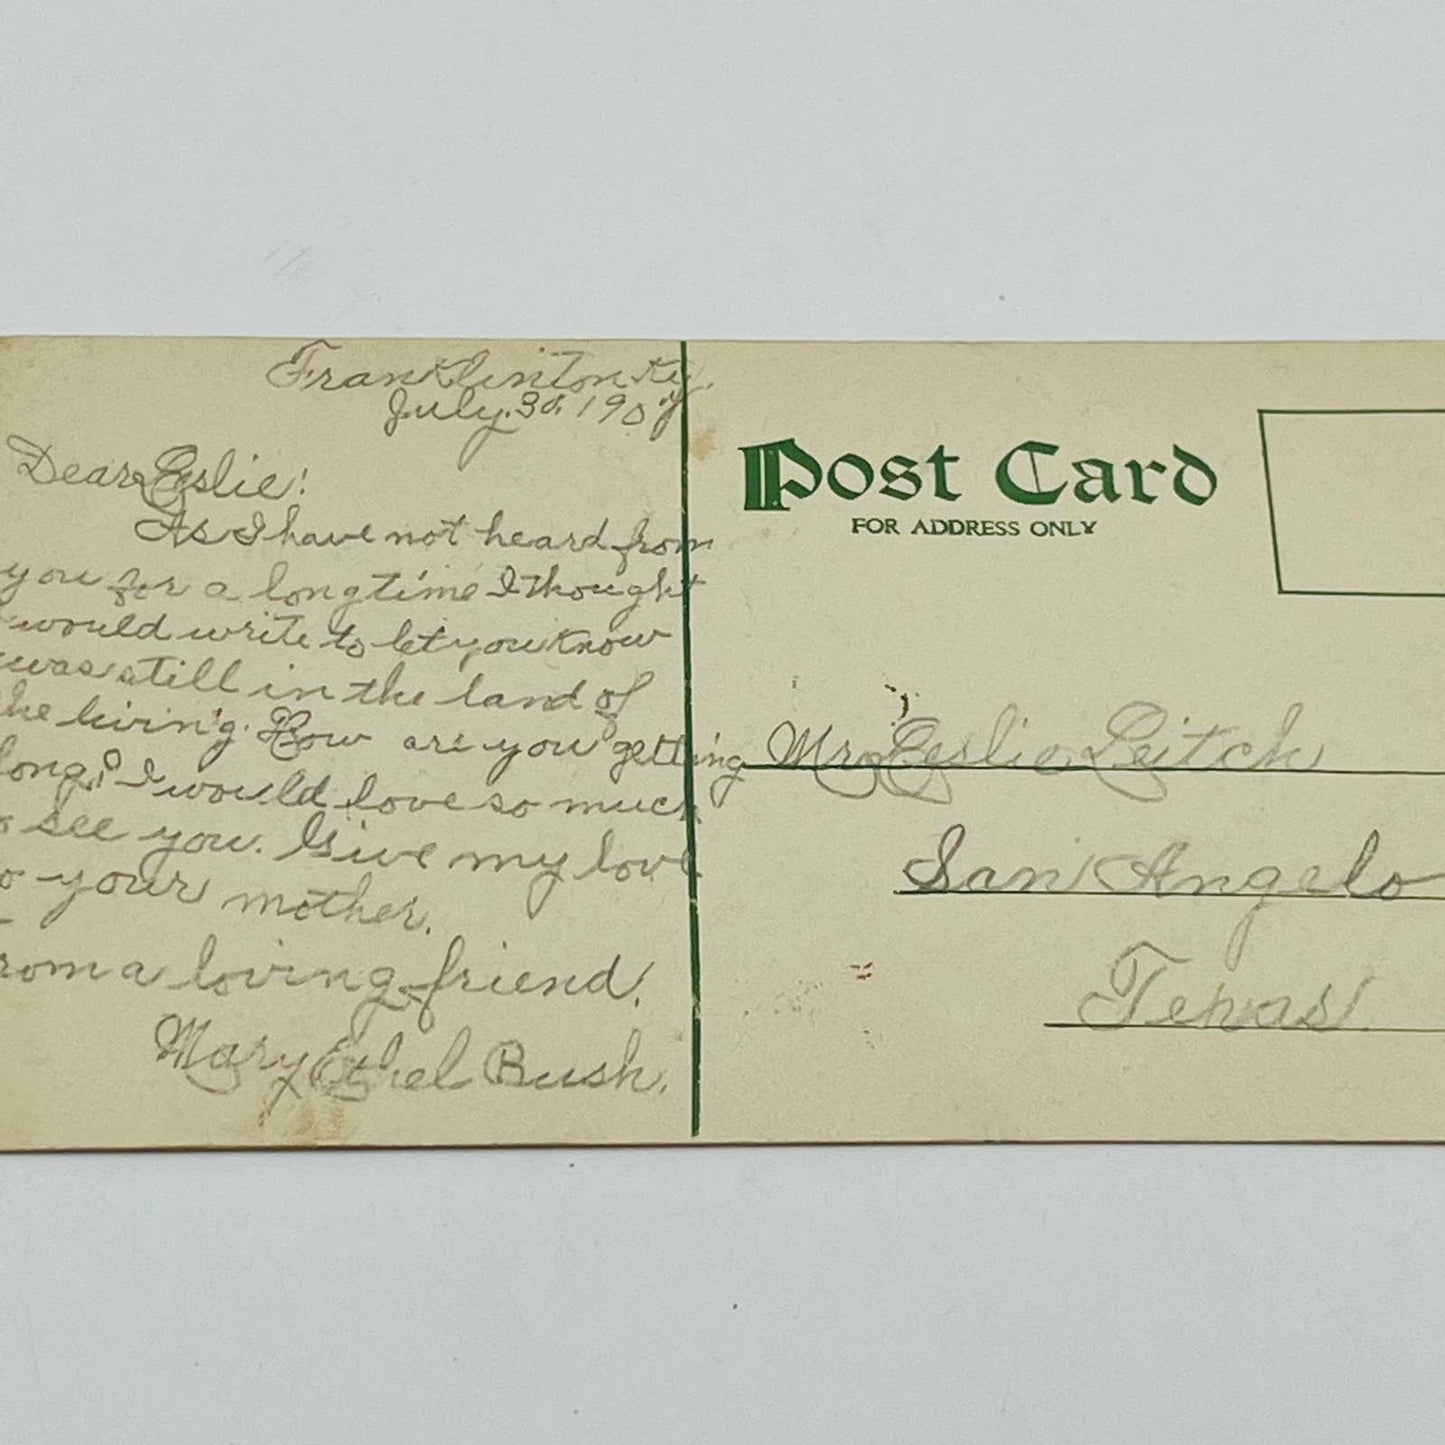 Franklinton Ky.
July. 30. 190
Dear Leslie!
As I have not heard from
you for a long time I thought
would write to let you know
was still in the land of
he living. How are you getting
long? I would love so much
o see you. Give my love
o your mother.
rom a loving friend.
Mary Ethel Bush.
Post Card
FOR ADDRESS ONLY
Mr. Leslie Leitch
San Angelo
Texas.